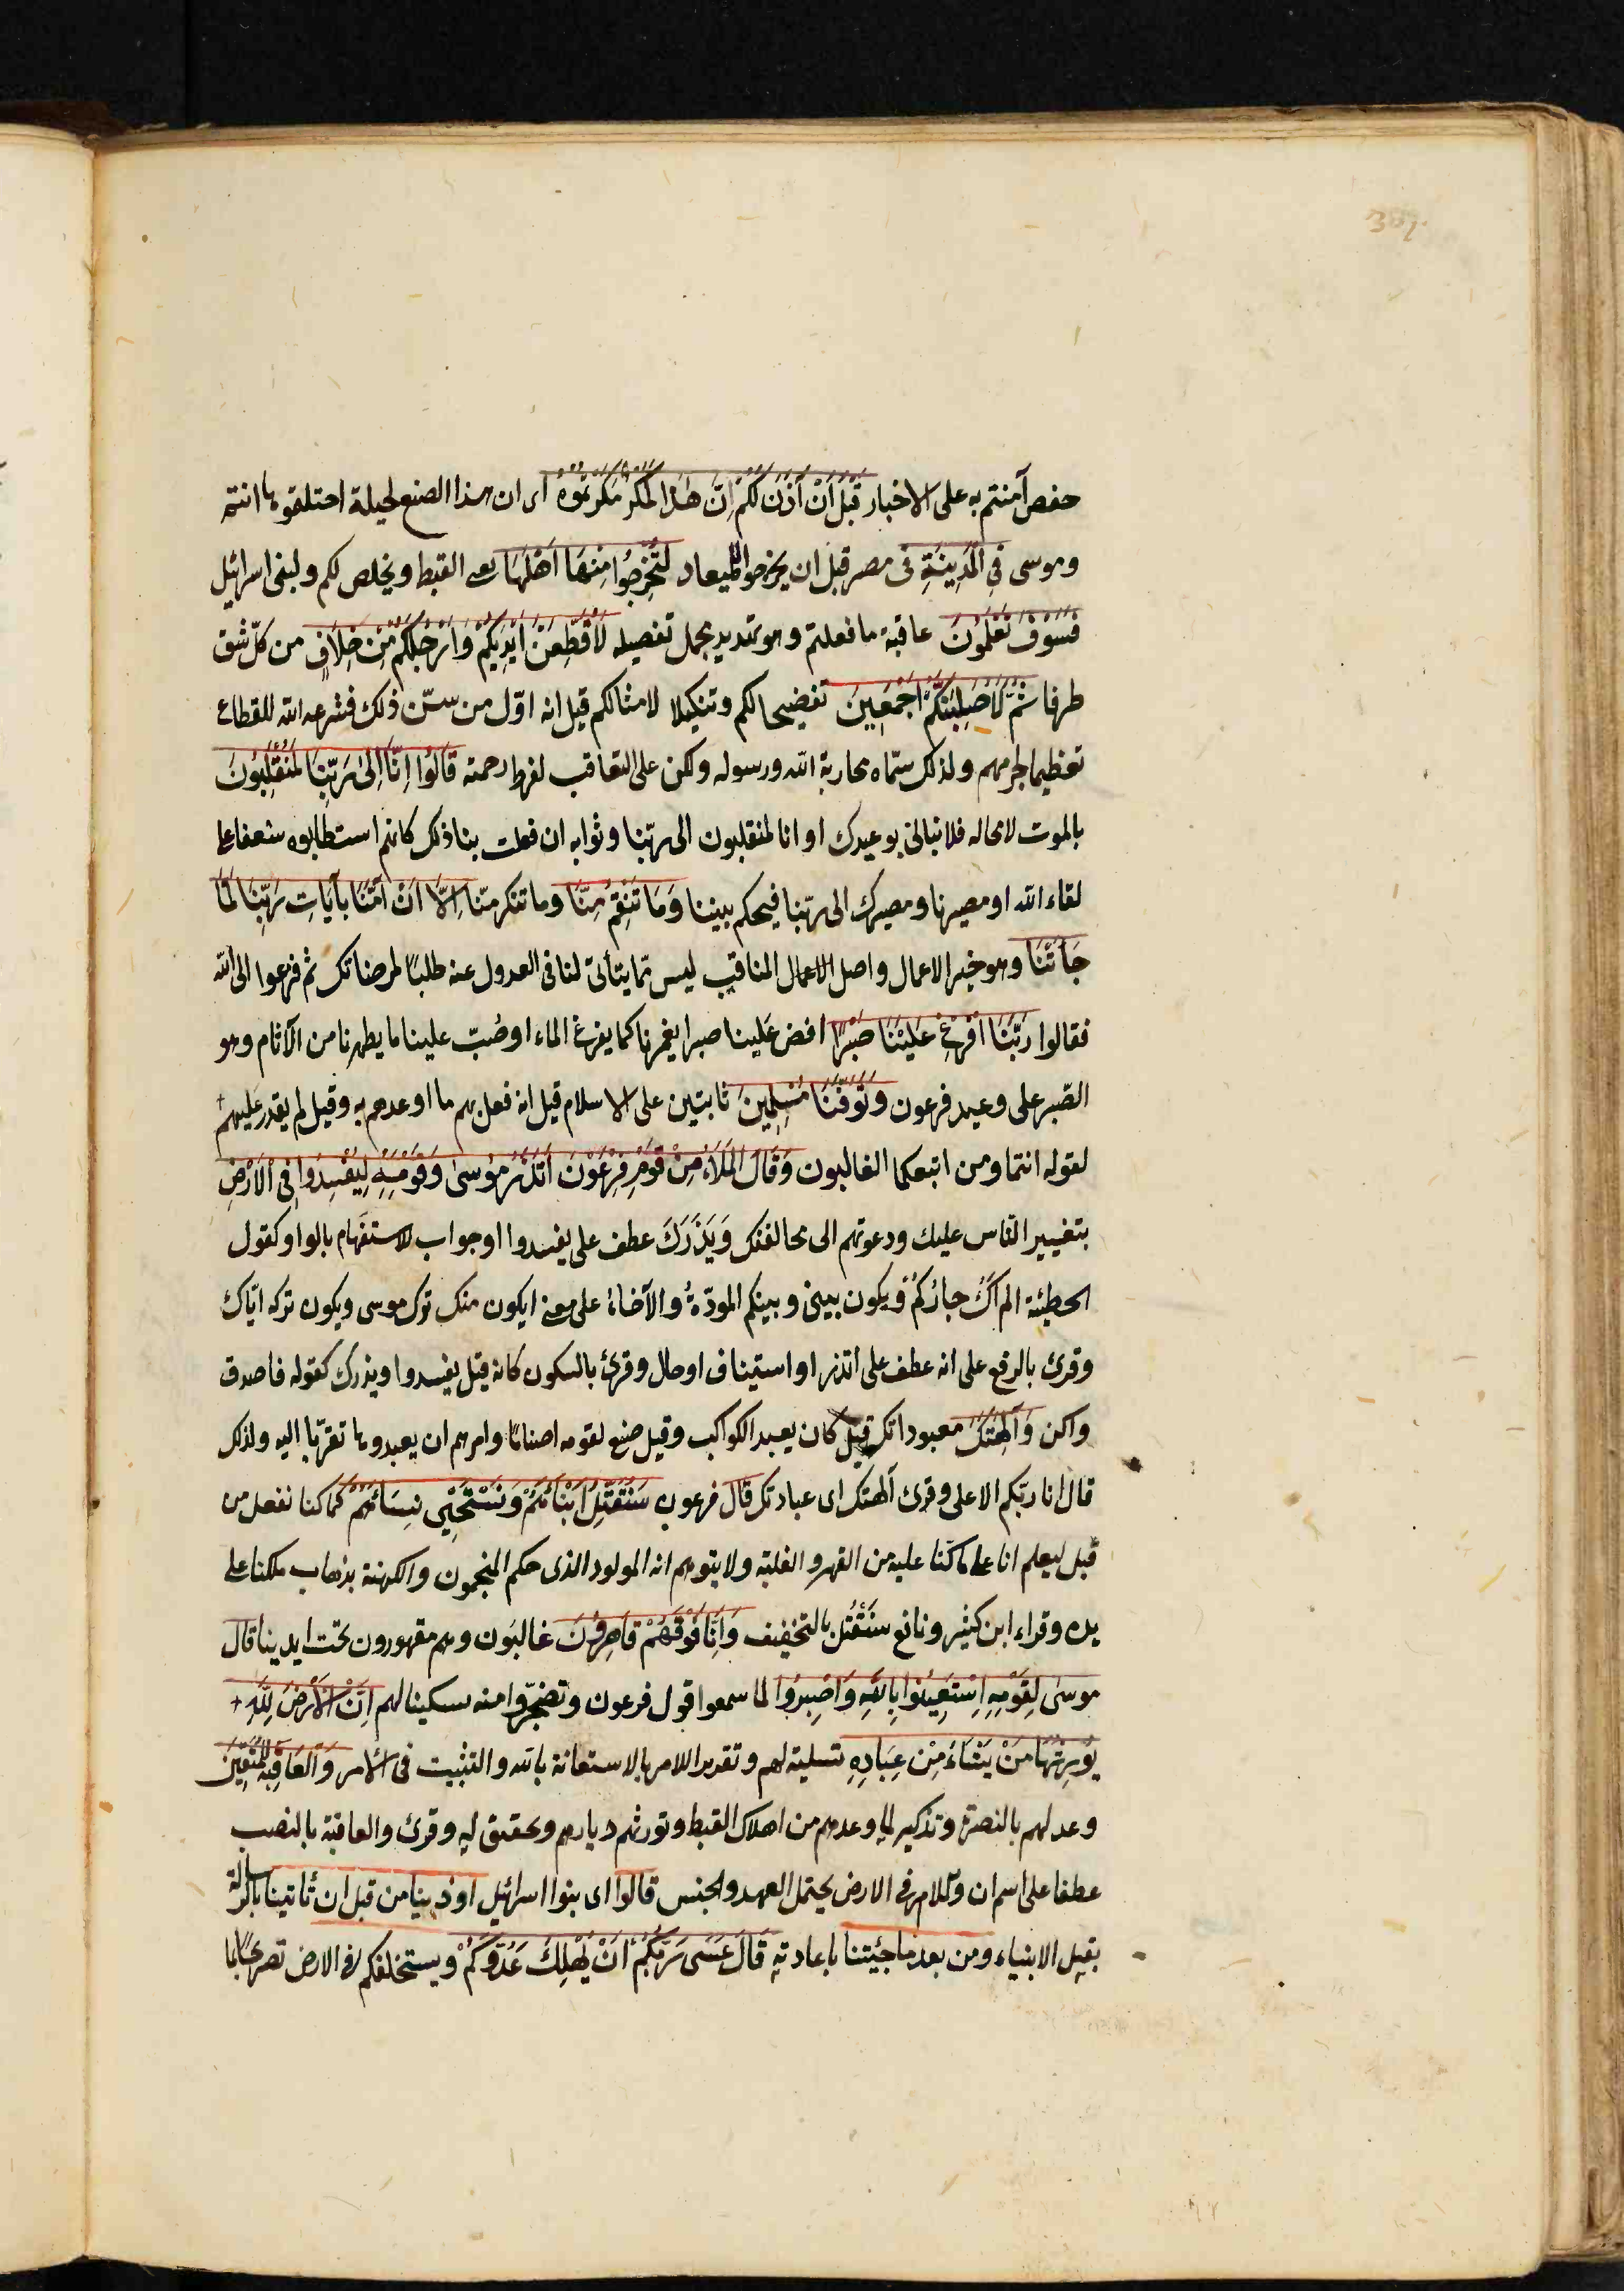 حفص آمنتم به على الاخبار قَبْلَ أَنْ آذَنَ لَكُمْ اِنَّ هٰذَا لَمَكْرٌ مَكَرْتُمُوهُ اى ان هذا الصنع لحيلة احتلقتموها انتم
وموسى فِي الْمَدِينَةِ فى مصر قبل ان يخرجوا للميعاد لِتُخْرِجُوا مِنْهَا اَهْلَهَا يعنى القبط ويخلص لكم ولبنى اسرائيل
فَسَوْفَ تَعْلَمُونَ عاقبة ما فعلتم وهو تهديد مجمل تفصيله لَاُقَطِّعَنَّ اَيْدِيَكُمْ وَاَرْجُلَكُمْ مِنْ خِلَافٍ من كلّ شق
طرفا ثُمَّ لَاُصَلِّبَنَّكُمْ اَجْمَعِينَ تفضيحا لكم وتنكيلا لامثالكم قيل انه اوّل من سنّ ذلك فشرعه الله للقطاع
تعظيما لجرمهم ولذلك سمّاه محاربة الله ورسوله ولكن على التعاقب لفرط رحمته قَالُوا اِنَّا اِلٰى رَبِّنَا لَمُنْقَلِبُونَ
بالموت لا محاله فلا نبالى بوعيدك او انا لمنقلبون الى ربّنا وثوابه ان فعلت بنا ذلك كانهم استطابوه شعفا على
لقاء الله او مصيرنا ومصيرك الى ربّنا فيحكم بيننا وَمَا تَنْقِمُ مِنَّا وما تنكر منّا اِلَّا اَنْ اٰمَنَّا بِآيَاتِ رَبِّنَا لَمَّا
جَاءَتْنَا وهو خير الاعمال واصل الاعمال المناقب ليس ممّا يتأتى لنا فى العدول عنه طلبًا لمرضاتك ثم فزعوا الى الله
فقالوا رَبَّنَا اَفْرِغْ عَلَيْنَا صَبْرًا افض علينا صبرا يغمرنا كما يفرغ الماء او صُبّ علينا ما يطهرنا من الآثام وهو
الصّبر على وعيد فرعون وَتَوَفَّنَا مُسْلِمِينَ ثابتين على الاسلام قيل انه فعل بهم ما اوعدهم به وقيل لم يقدر عليهم
لقوله انتما ومن اتبعكما الغالبون وَقَالَ الْمَلَاُ مِنْ قَوْمِ فِرْعَوْنَ اَتَذَرُ مُوسٰى وَقَوْمَهُ لِيُفْسِدُوا فِى الْاَرْضِ
بتغيير النّاس عليك ودعوتهم الى مخالفتك وَيَذَرَكَ عطف على يفسدوا او جواب الاستفهام بالواو كقول
الحطيئة الم اَكُ جارَكُمْ ويكون بينى وبينكم المودّةُ والآخاءُ على معنى ايكون منك ترك موسى ويكون تركه ايّاك
وقرئ بالرفع على انه عطف على اتذر او استيناف او حال وقرئ بالسكون كانه قيل يفسدوا ويذرك كقوله فاصدق
واكن وَآلِهَتَكَ معبوداتك قيل كان يعبد الكواكب وقيل صنع لقومه اصنامًا وامرهم ان يعبدوها تقرّبًا اليه ولذلك
قال انا ربّكم الاعلى وقرئ آلهتك اى عبادتك قال فرعون سَنُقَتِّلُ اَبْنَاءَهُمْ وَنَسْتَحْيِى نِسَاءَهُمْ كما كنا نفعل من
قبل ليعلم انا على ما كنّا عليه من القهر والغلبة ولا يتوهم انه المولود الذى حكم المنجمون والكهنة بذهاب ملكنا على
يده وقراء ابن كثير ونافع سَنَقْتُلُ بالتخفيف وَاِنَّا فَوْقَهُمْ قَاهِرُونَ غالبون وهم مقهورون تحت ايدينا قال
موسٰى لِقَوْمِهِ اِسْتَعِينُوا بِاللهِ وَاصْبِرُوا لما سمعوا قول فرعون وتضجّروا منه تسكينا لهم اِنَّ الْاَرْضَ لِلّٰهِ
يُورِثُهَا مَنْ يَشَاءُ مِنْ عِبَادِهِ تسلية لهم وتقرير اللامر بالاستعانة بالله والتثبيت فى الامر وَالْعَاقِبَةُ لِلْمُتَّقِينَ
وعد لهم بالنصرة وتذكير لما وعدهم من اهلاك القبط وتوريثهم ديارهم وتحقيق له وقرئ والعاقبة بالنصب
عطفا على اسم ان واللام فى الارض يحتمل العهد والجنس قالوا اى بنوا اسرائيل اوذينا من قبل ان تأتينا بالرسالة
بقبل الانبياء ومن بعد ما جئتنا باعادته قَالَ عَسٰى رَبُّكُمْ اَنْ يُهْلِكَ عَدُوَّكُمْ ويستخلفكم فى الارض تصريحًا بما